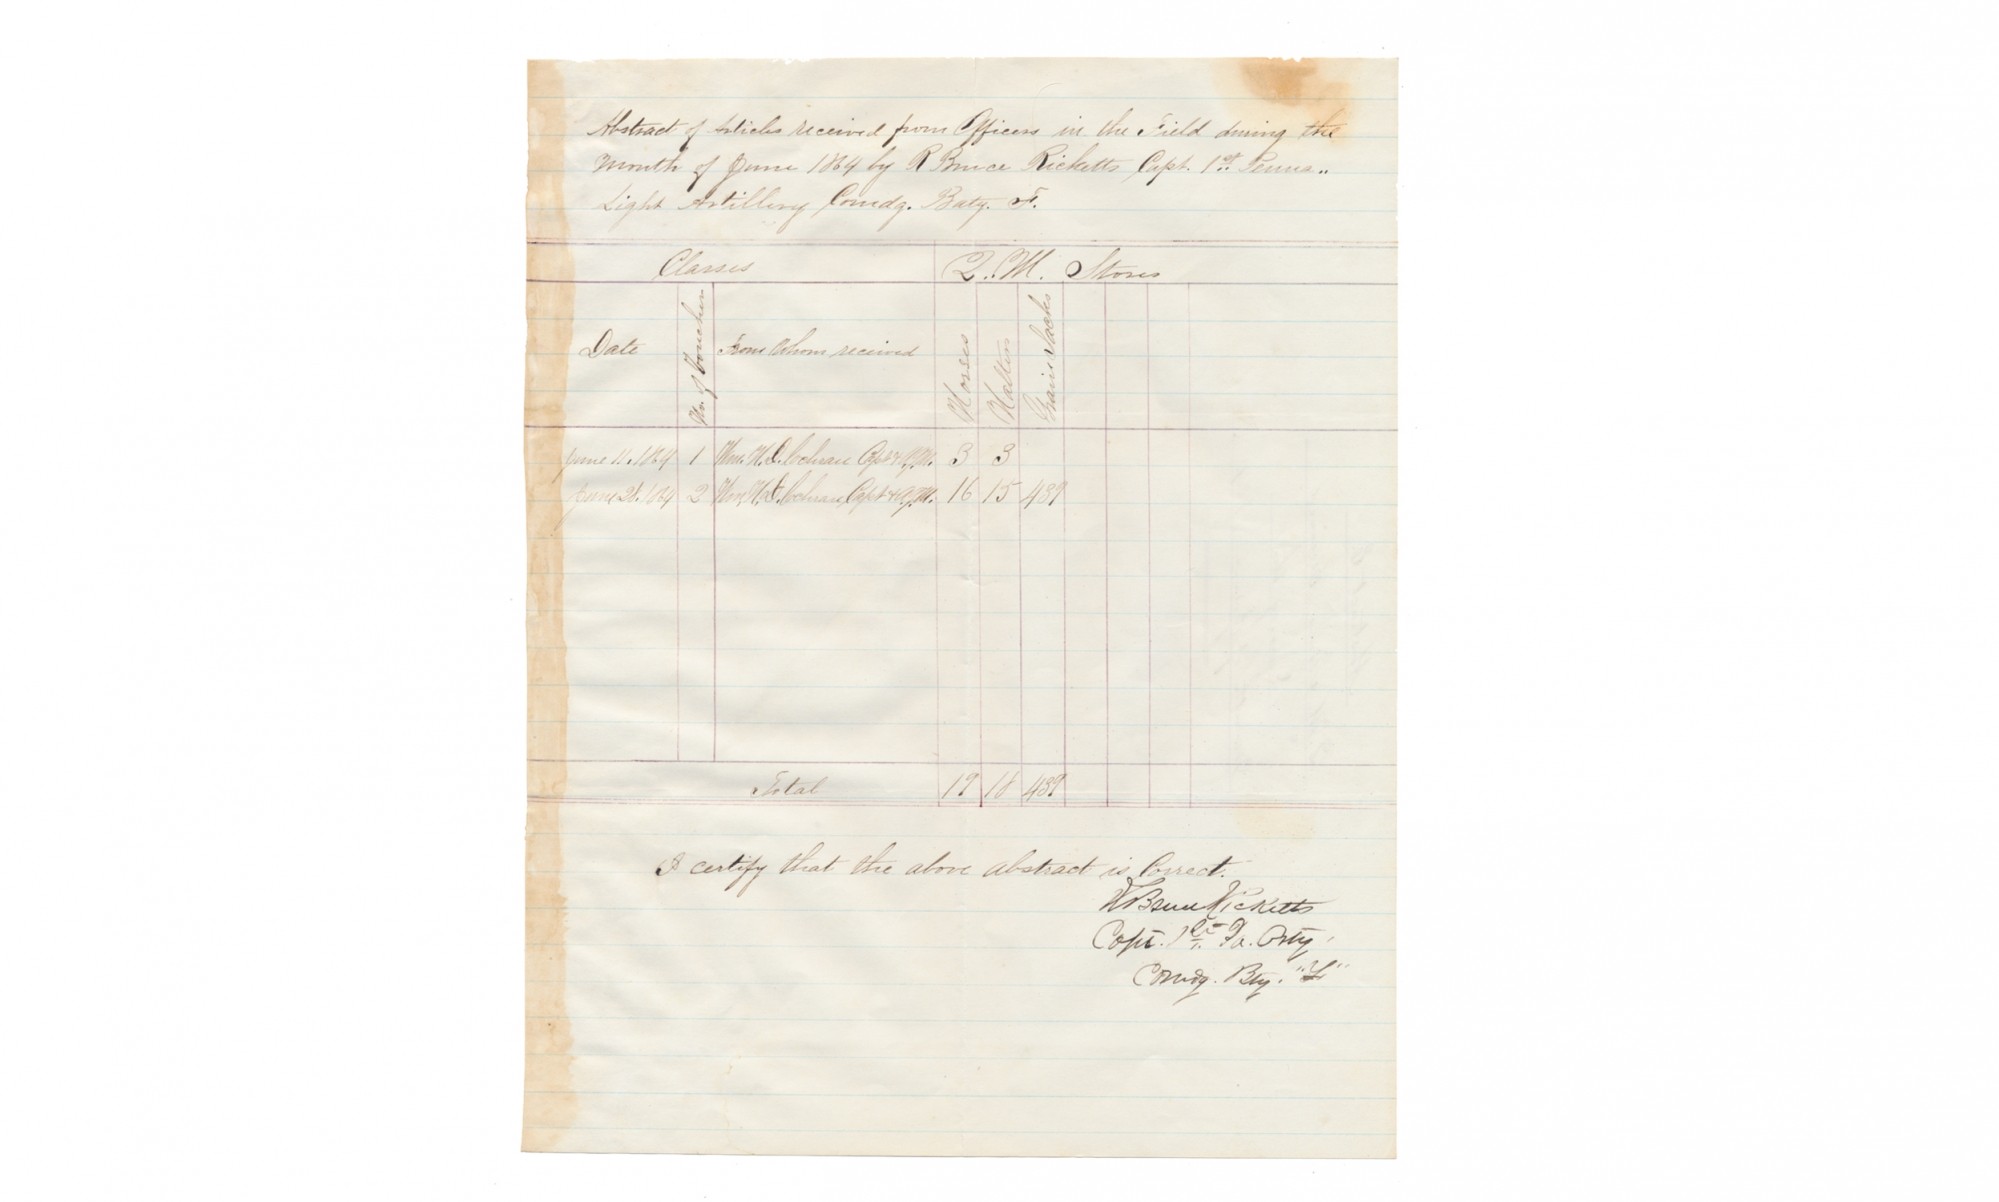 Abstract of Articles received from Officers in the Field during the
Month of June 1864 by R Bruce Ricketts Capt. 1st Penna..
Light Artillery Comdg. Baty. F.
Classes Q. M. Stores
Date No. of Voucher From whom received Horses Halters Grain Sacks
June 11. 1864 1 Wm. H. D. Cochran Capt & A.Q.M. 3 3
June 21. 1864 2 Wm. H. D. Cochran, Capt & A.Q.M. 16 15 439
Total 19 18 439
I certify that the above abstract is Correct.
R Bruce Ricketts
Capt. 1st Pa. Arty.
Comdg. Bty. "F"